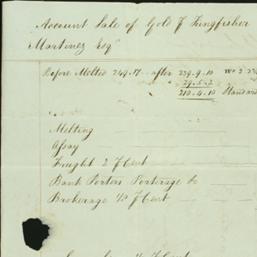 Account Sale of Gold J Kingfisher
Martinez Esqr
Before Melted 249.17 after 239.9.10
29.5.2
210.4.10 Standard
Melting
Assay
Freight 2 P Cent
Bank Porters Porterage &c
Brokerage 1/8 P Cent